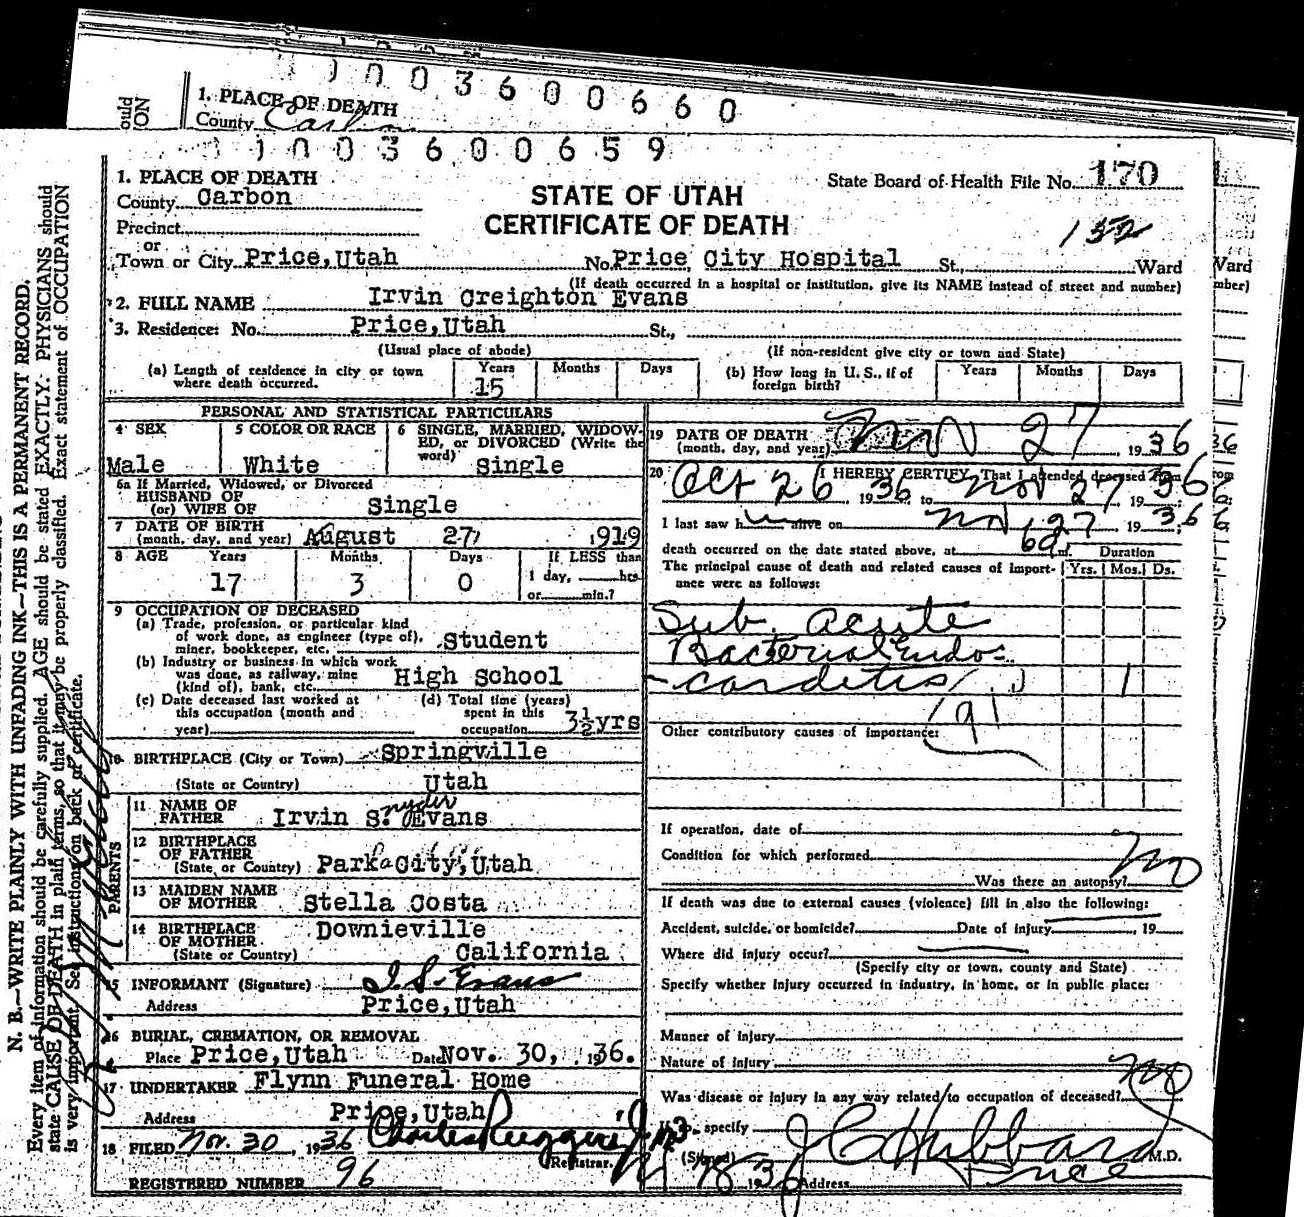 1 0 0 3 6 0 0 6 6 0
1. PLACE OF DEATH
County Carbon
1 0 0 3 6 0 0 6 5 9
1. PLACE OF DEATH
County Carbon
Precinct
or
Town or City Price, Utah
STATE OF UTAH
CERTIFICATE OF DEATH
State Board of Health File No. 170
132
No. Price City Hospital St., Ward
(If death occurred in a hospital or institution, give its NAME instead of street and number)
2. FULL NAME Irvin Creighton Evans
3. Residence: No. Price, Utah St.,
(Usual place of abode) (If non-resident give city or town and State)
(a) Length of residence in city or town where death occurred. Years 15 Months Days
(b) How long in U. S., if of foreign birth? Years Months Days
PERSONAL AND STATISTICAL PARTICULARS
4 SEX Male
5 COLOR OR RACE White
6 SINGLE, MARRIED, WIDOWED, or DIVORCED (Write the word) Single
6a If Married, Widowed, or Divorced
HUSBAND OF
(or) WIFE OF Single
7 DATE OF BIRTH
(month, day, and year) August 27, 1919
8 AGE Years 17 Months 3 Days 0 If LESS than
1 day, hrs.
or min.?
9 OCCUPATION OF DECEASED
(a) Trade, profession, or particular kind
of work done, as engineer (type of),
miner, bookkeeper, etc. Student
(b) Industry or business in which work
was done, as railway, mine
(kind of), bank, etc. High School
(c) Date deceased last worked at
this occupation (month and
year)
(d) Total time (years)
spent in this
occupation 3½yrs
10 BIRTHPLACE (City or Town) Springville
(State or Country) Utah
PARENTS
11 NAME OF
FATHER Irvin Snyder Evans
12 BIRTHPLACE
OF FATHER
(State or Country) Park City, Utah
13 MAIDEN NAME
OF MOTHER Stella Costa
14 BIRTHPLACE
OF MOTHER
(State or Country) Downieville
California
15 INFORMANT (Signature) I. S. Evans
Address Price, Utah
16 BURIAL, CREMATION, OR REMOVAL
Place Price, Utah Date Nov. 30, 1936.
17 UNDERTAKER Flynn Funeral Home
Address Price, Utah
18 FILED Nov. 30, 1936 Charles Ruggeri Jr.
Registrar.
REGISTERED NUMBER 96
19 DATE OF DEATH
(month, day, and year) Nov 27 1936
20 I HEREBY CERTIFY, That I attended deceased from
Oct 26 1936 to Nov 27 1936
I last saw him alive on Nov 27 1936
death occurred on the date stated above, at 6a m. Duration
The principal cause of death and related causes of importance were as follows: Yrs. Mos. Ds.
Sub. acute
Bacterial Endo-
carditis 1
91
Other contributory causes of importance:
If operation, date of
Condition for which performed
Was there an autopsy? no
If death was due to external causes (violence) fill in also the following:
Accident, suicide, or homicide? Date of injury , 19
Where did injury occur?
(Specify city or town, county and State)
Specify whether injury occurred in industry, in home, or in public place:
Manner of injury
Nature of injury
Was disease or injury in any way related to occupation of deceased? no
If so, specify
(Signed) J C Hubbard M.D.
1936 Address Price
N. B.—WRITE PLAINLY WITH UNFADING INK—THIS IS A PERMANENT RECORD.
Every item of information should be carefully supplied. AGE should be stated EXACTLY. PHYSICIANS should
state CAUSE OF DEATH in plain terms, so that it may be properly classified. Exact statement of OCCUPATION
is very important. See instructions on back of certificate.